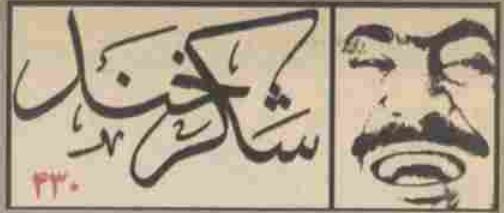 شکرخند
۴۳۰